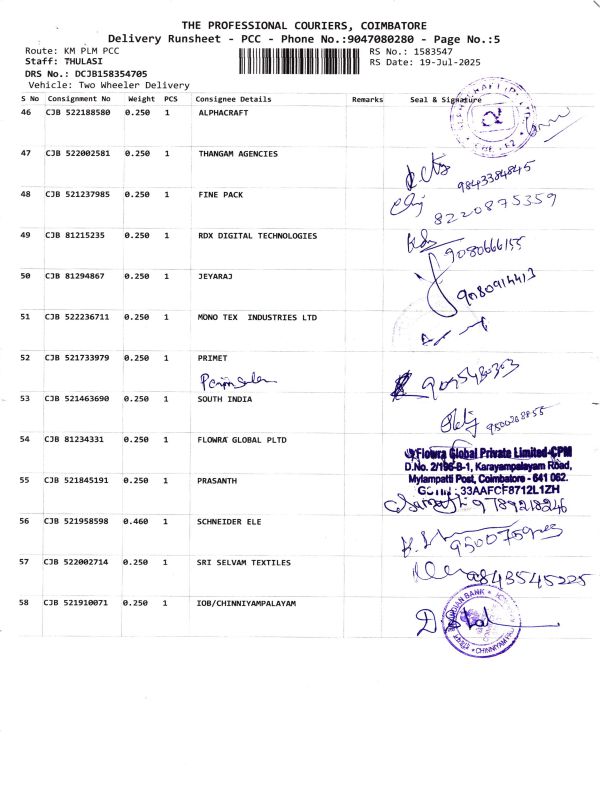 THE PROFESSIONAL COURIERS, COIMBATORE
Delivery Runsheet - PCC - Phone No.:9047080280 - Page No.:5
Route: KM PLM PCC
RS No.: 1583547
Staff: THULASI
RS Date: 19-Jul-2025
DRS No.: DCJB158354705
Vehicle: Two Wheeler Delivery
S No Consignment No Weight PCS Consignee Details Remarks Seal & Signature
46 CJB 522188580 0.250 1 ALPHACRAFT
47 CJB 522002581 0.250 1 THANGAM AGENCIES
9843384845
48 CJB 521237985 0.250 1 FINE PACK
8220875359
49 CJB 81215235 0.250 1 RDX DIGITAL TECHNOLOGIES
9080666155
50 CJB 81294867 0.250 1 JEYARAJ
9080914413
51 CJB 522236711 0.250 1 MONO TEX INDUSTRIES LTD
52 CJB 521733979 0.250 1 PRIMET
53 CJB 521463690 0.250 1 SOUTH INDIA
54 CJB 81234331 0.250 1 FLOWRA GLOBAL PLTD
Flowra Global Private Limited-CPM
D.No. 2/196-B-1, Karayampalayam Road,
Mylampatti Post, Coimbatore - 641 062.
33AAFCF8712L1ZH
55 CJB 521845191 0.250 1 PRASANTH
9789218246
56 CJB 521958598 0.460 1 SCHNEIDER ELE
57 CJB 522002714 0.250 1 SRI SELVAM TEXTILES
9843545225
58 CJB 521910071 0.250 1 IOB/CHINNIYAMPALAYAM